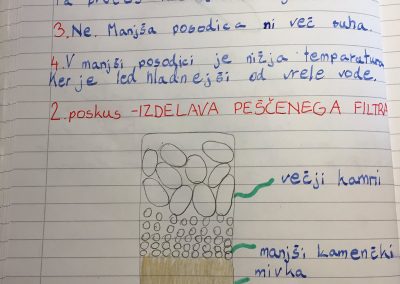 3. Ne. Manjša posodica ni več suha.
4. V manjši posodici je nižja temparatura
ker je led hladnejši od vrele vode.
2. poskus - IZDELAVA PEŠČENEGA FILTRA
večji kamni
manjši kamenčki
mivka